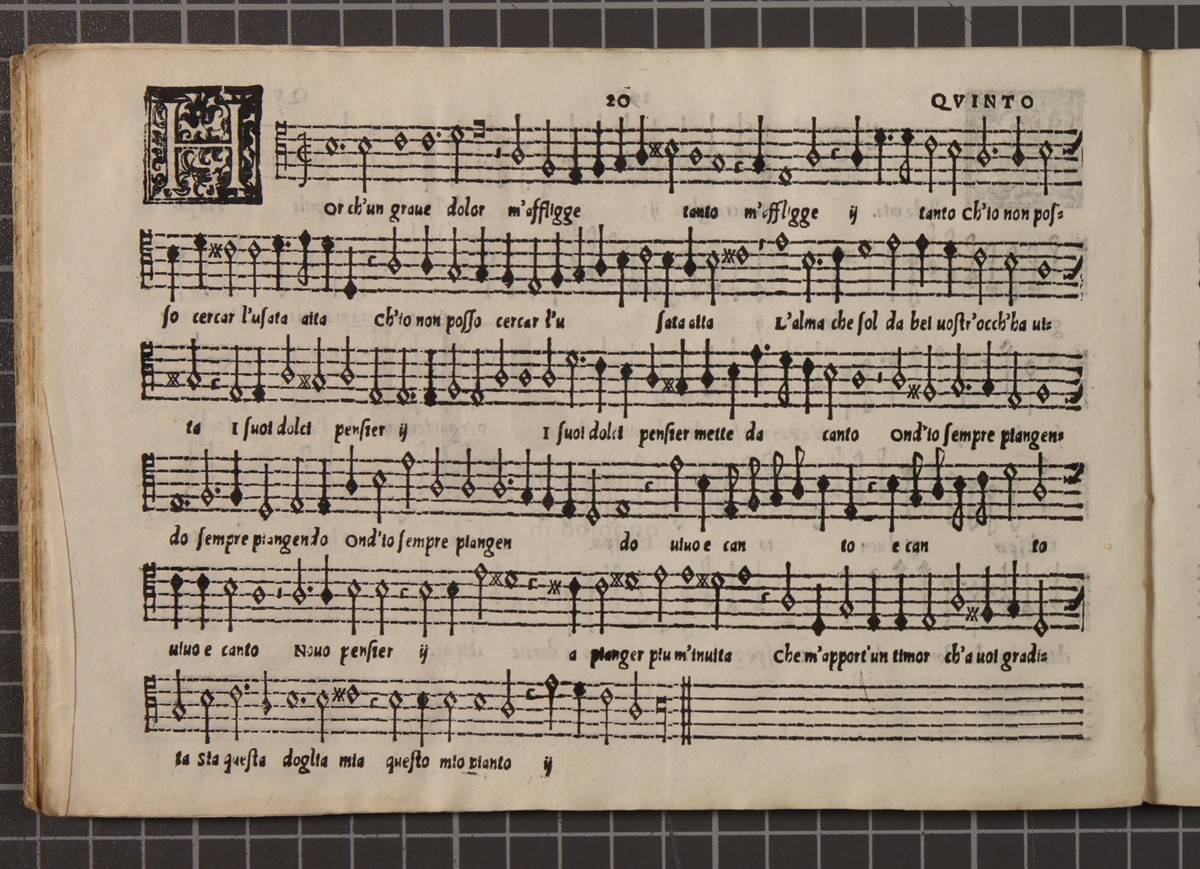 20 QVINTO
HOr ch'un graue dolor m'affligge ij tanto m'affligge ij tanto Ch'io non pos=
so cercar l'usata aita Ch'io non posso cercar l'u sata aita L'alma che sol da bei uostr'occh'ha ui=
ta I suoi dolci pensier ij I suoi dolci pensier mette da canto Ond'io sempre piangen=
do sempre piangendo Ond'io sempre piangen do uiuo e can to e can to
uiuo e canto Nouo pensier ij a pianger piu m'inuita Che m'apport'un timor ch'a uoi gradi=
ta Sia questa doglia mia questo mio pianto ij